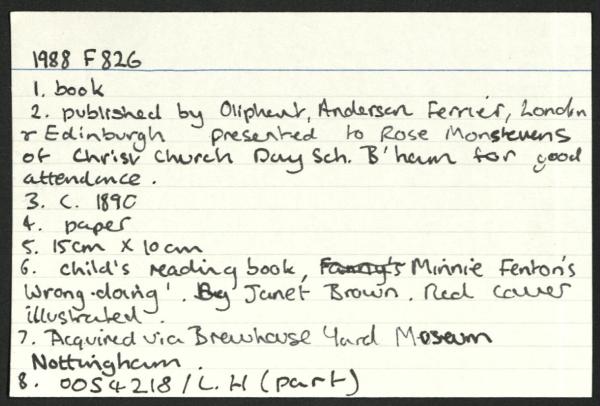 1988 F826
1. book
2. published by Oliphent, Anderson Ferrier, London
& Edinburgh presented to Rose Monstevens
of Christ Church Day Sch. B'ham for good
attendance.
3. C. 1890
4. paper
5. 15cm X 10cm
6. child's reading book, Fanny's Minnie Fenton's
Wrong-doing'. By Janet Brown. Red cover
illustrated.
7. Acquired via Brewhouse Yard Museum
Nottingham.
8. 0054218/L.H (part)